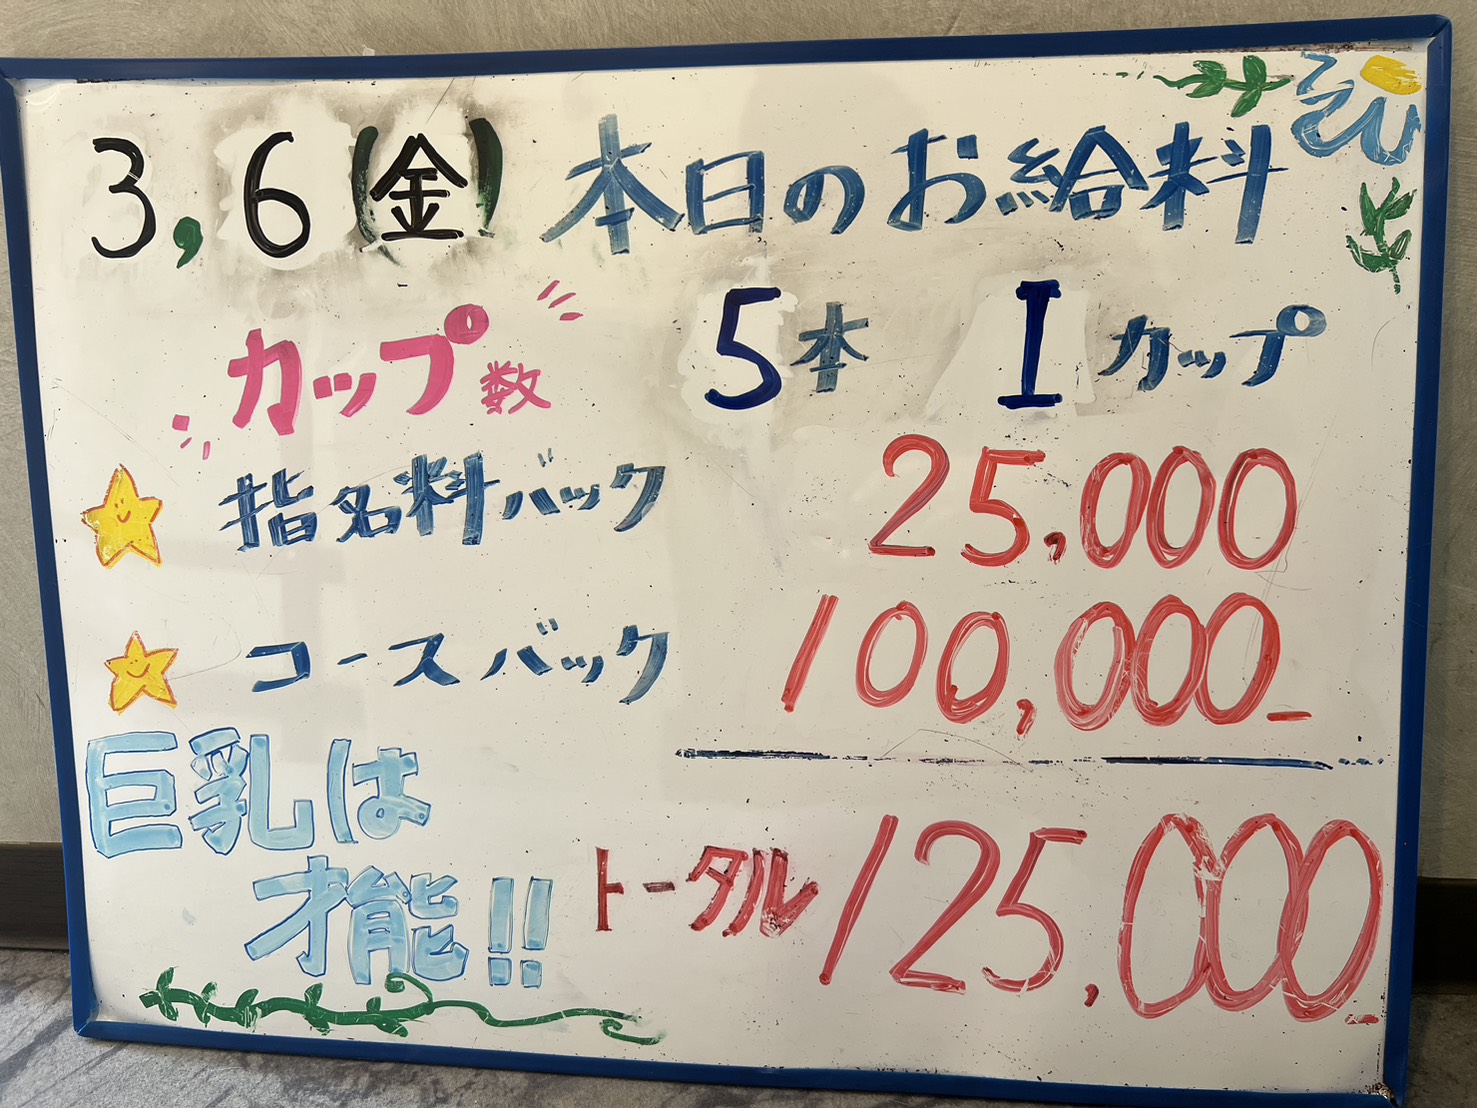 3,6(金) 本日のお給料
カップ数 5本 Iカップ
指名料バック 25,000
コースバック 100,000-
巨乳は
才能!!
トータル 125,000-